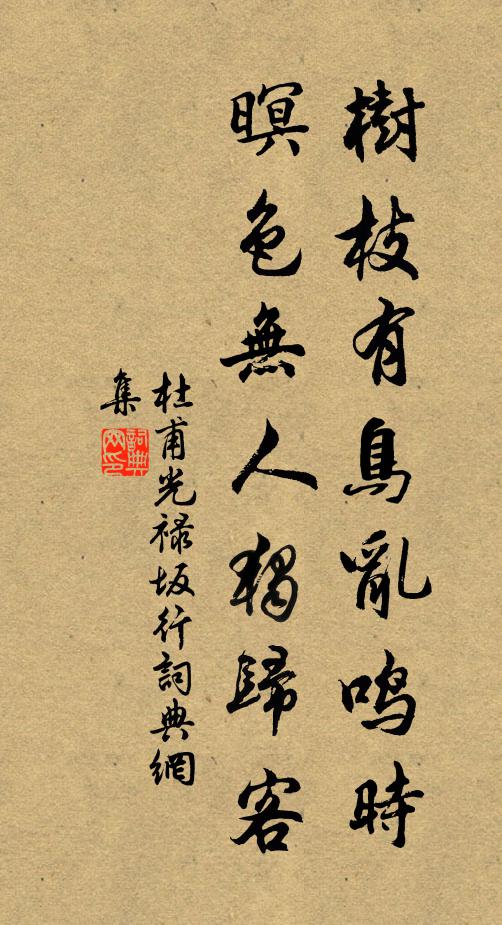 樹枝有鳥亂鳴時
暝色無人獨歸客
杜甫光祿坂行詞典網
集
詞典
网印